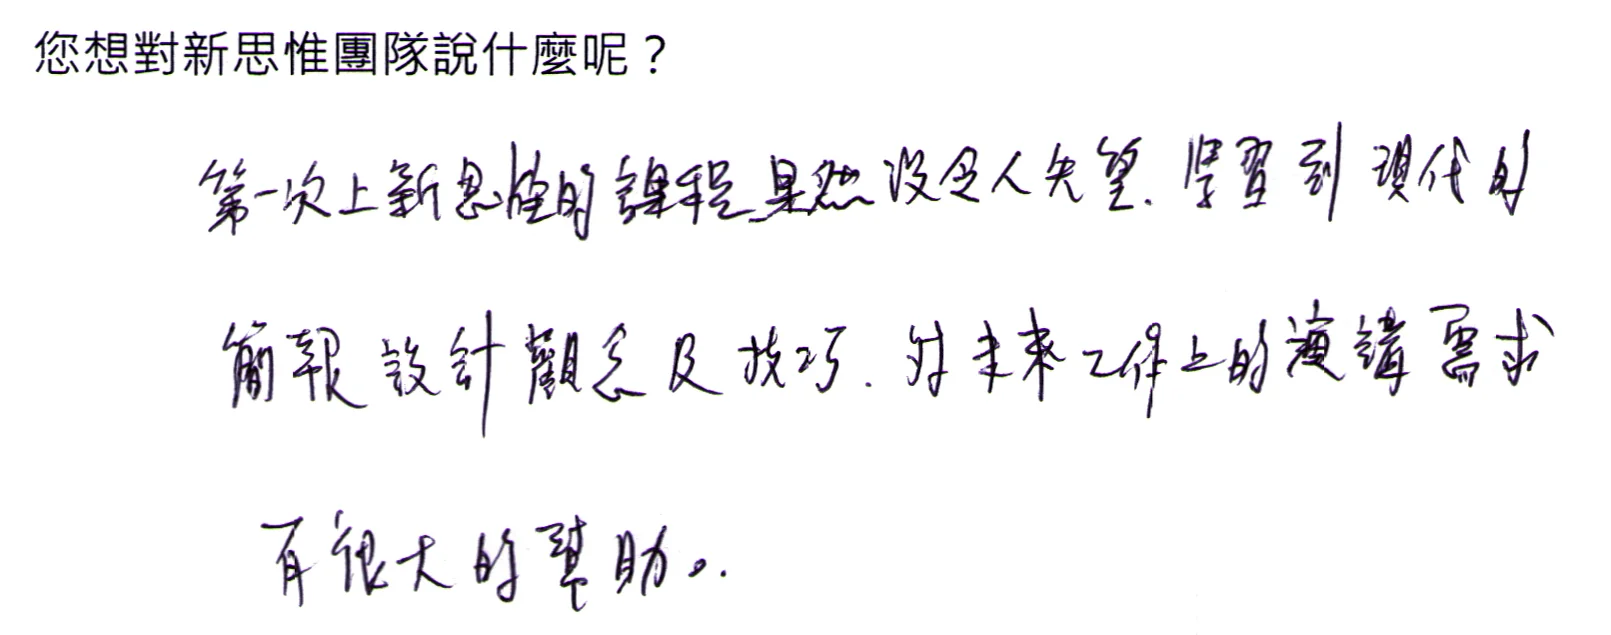 您想對新思惟團隊說什麼呢？
第一次上新思惟的課程果然沒令人失望.學習到現代的
簡報設計觀念及技巧.对未來工作上的演講需求
有很大的幫助。.